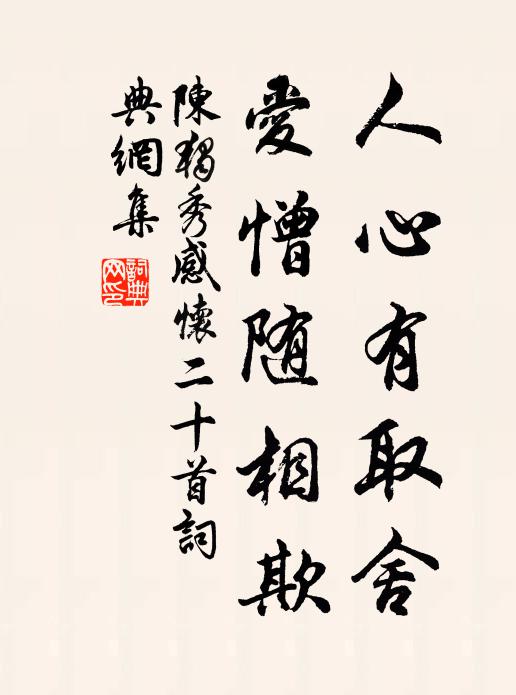 人心有取舍
愛憎随相欺
陳獨秀感懷二十首詞
典網集
詞典
网印